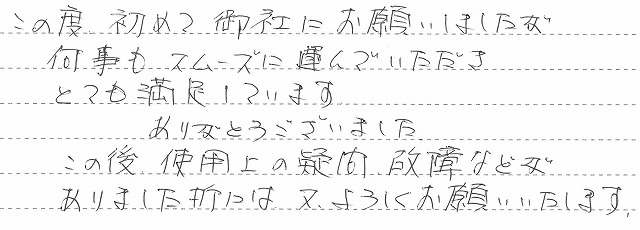 この度 初めて 御社に お願いしましたが
何事も スムーズに 運んでいただき
とても 満足しています
ありがとうございました
この後 使用上の疑問 故障などが
ありました折には 又、よろしくお願いいたします.